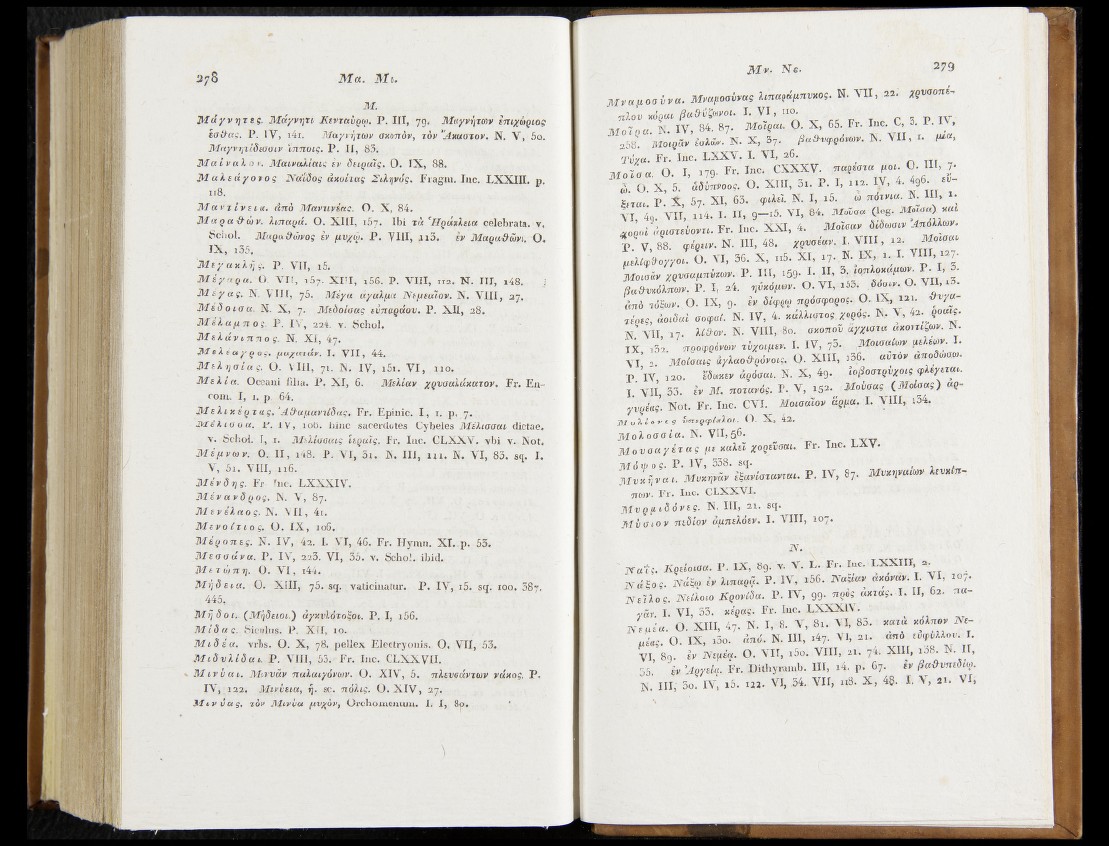 278 Μα. Μι.
Μ.
Μάγνητες. Μάγνητι Κενταύρῳ. P. III, 79. Μαγνήτων ἐπιχώριος
ἐσθάς. P. IV, 141. Μαγνήτων σκοπόν, τὸν Ἄκαστον. N. V, 50.
Μαγνητίδεσσιν ἵπποις. P. II, 83.
Μαίναλον. Μαιναλίαις ἐν δειραῖς. O. IX, 88.
Μαλεάγονος Ναΐδος ἀκοίτας Σιληνός. Fragm. Inc. LXXIII. p.
118.
Μαντίνεια. ἀπὸ Μαντινέας. O. X, 84.
Μαραθών. λιπαρά. O. XIII, 157. Ibi τὰ Ἡράκλεια celebrata. v.
Schol. Μαραθῶνος ἐν μυχῷ. P. VIII, 113. ἐν Μαραθῶνι. O.
IX, 135.
Μεγακλῆς. P. VII, 15.
Μέγαρα. O. VII, 157. XIII, 156. P. VIII, 112. N. III, 148.
Μέγας. N. VIII, 75. Μέγα ἄγαλμα Νεμεαῖον. N. VIII, 27.
Μέδοισα. N. X, 7. Μεδοίσας εὐπαράου. P. XII, 28.
Μέλαμπος. P. IV, 224. v. Schol.
Μελάνιππος. N. XI, 47.
Μελέαγρος. μαχατάν. I. VII, 44.
Μελησίας. O. VIII, 71. N. IV, 151. VI, 110.
Μελία. Oceani filia. P. XI, 6. Μελίαν χρυσαλάκατον. Fr. En-
com. I, 1. p. 64.
Μελικέρτας. Ἀθαμαντίδας. Fr. Epinic. I, 1. p. 7.
Μέλισσα. P. IV, 106. hinc sacerdotes Cybeles Μέλισσαι dictae.
v. Schol. I, 1. Μελίσσαις ἱεραῖς. Fr. Inc. CLXXV. vbi v. Not.
Μέμνων. O. II, 148. P. VI, 31. N. III, 111. N. VI, 83. sq. I.
V, 51. VIII, 116.
Μένδης. Fr Inc. LXXXIV.
Μένανδρος. N. V, 87.
Μενέλαος. N. VII, 41.
Μενοίτιος. O. IX, 106.
Μέροπες. N. IV, 42. I. VI, 46. Fr. Hymn. XI. p. 53.
Μεσσάνα. P. IV, 223. VI, 35. v. Schol. ibid.
Μετώπη. O. VI, 144.
Μήδεια. O. XIII, 75. sq. vaticinatur. P. IV, 15. sq. 100. 387.
445.
Μῆδοι. (Μήδειοι) ἀγκυλότοξοι. P. I, 156.
Μίδας. Siculus. P. XII, 10.
Μιδέα. vrbs. O. X, 78. pellex Electryonis. O. VII, 53.
Μιδυλίδαι. P. VIII, 53. Fr. Inc. CLXXVII.
Μινύαι. Μινυᾶν παλαιγόνων. O. XIV, 5. πλευσάντων νάκος. P.
IV, 122. Μινύεια, ἡ. sc. πόλις. O. XIV, 27.
Μινύας. τὸν Μινύα μυχόν, Orchomenum. I. I, 80.
Μν. Νε. 279
Μναμοσύνα. Μναμοσύνας λιπαράμπυκος. N. VII, 22. χρυσοπέ-
πλου κόραι βαθύζωνοι. I. VI, 110.
Μοῖρα. N. IV, 84. 87. Μοῖραι. O. X, 65. Fr. Inc. C, 3. P. IV,
258. Μοιρᾶν ἐσλῶν. N. X, 37. βαθυφρόνων. N. VII, 1. μία,
Τύχα. Fr. Inc. LXXV. I. VI, 26.
Μοῖσα. O. I, 179. Fr. Inc. CXXXV. παρέστα μοι. O. III, 7.
ὦ. O. X, 5. ἁδύπνοος. O. XIII, 31. P. I, 112. IV, 4. 496. εὔ-
ξεται. P. X, 57. XI, 63. φιλεῖ. N. I, 15. ὦ πότνια. N. III, 1.
VI, 49. VII, 114. I. II, 9—15. VI, 84. Μοῦσα (leg. Μοῖσα) καὶ
χοραὶ ἀριστεύοντι. Fr. Inc. XXI, 4. Μοῖσαν δίδωσιν Ἀπόλλων.
P. V, 88. φέρειν. N. III, 48. χρυσέαν. I. VIII, 12. Μοῖσαι
μελίφθογγοι. O. VI, 36. X, 115. XI, 17. N. IX, 1. I. VIII, 127.
Μοισᾶν χρυσαμπύκων. P. III, 159. I. II, 3. ἰοπλοκάμων. P. I, 3.
βαθυκόλπων. P. I, 24. ηὐκόμων. O. VI, 153. δόσιν. O. VII, 13.
ἀπὸ τόξων. O. IX, 9. ἐν δίφρῳ πρόσφορος. O. IX, 121. θυγα-
τέρες, ἀοιδαὶ σοφαί. N. IV, 4. κάλλιστος χορός. N. V, 42. ῥοαῖς.
N. VII, 17. λίθον. N. VIII, 80. σκοποῦ ἄγχιστα ἀκοντίζων. N.
IX, 132. προφρόνων τύχοιμεν. I. IV, 73. Μοισαίων μελέων. I.
VI, 2. Μοίσαις ἀγλαοθρόνοις. O. XIII, 136. αὐτὸν ἀποδώσω.
P. IV, 120. ἔδωκεν ἀρόσαι. N. X, 49. ἰοβοστρύχοις φλέγεται.
I. VII, 33. ἐν Μ. ποτανός. P. V, 152. Μούσας (Μοίσας) ἀρ-
γυρέας. Not. Fr. Inc. CVI. Μοισαῖον ἅρμα. I. VIII, 134.
Μολίονες ὑπερφίαλοι. O. X, 42.
Μολοσσία. N. VII, 56.
Μουσαγέτας με καλεῖ χορεῦσαι. Fr. Inc. LXV.
Μόψος. P. IV, 338. sq.
Μυκῆναι. Μυκηνᾶν ἐξανίστανται. P. IV, 87. Μυκηναίων λευκίπ-
πων. Fr. Inc. CLXXVI.
Μυρμιδόνες. N. III, 21. sq.
Μύσιον πεδίον ἀμπελόεν. I. VIII, 107.
Ν.
Ναΐς. Κρείοισα. P. IX, 89. v. V. L. Fr. Inc. LXXIII, 2.
Νάξος. Νάξῳ ἐν λιπαρᾷ. P. IV, 156. Ναξίαν ἀκόναν. I. VI, 107.
Νεῖλος. Νείλοιο Κρονίδα. P. IV, 99. πρὸς ἀκτάς. I. II, 62. πα-
γάν. I. VI, 33. κέρας. Fr. Inc. LXXXIV.
Νεμέα. O. XIII, 47. N. I, 8. V, 81. VI, 83. κατὰ κόλπον Νε-
μέας. O. IX, 130. ἀπό. N. III, 147. VI, 21. ἀπὸ εὐφύλλου. I.
VI, 89. ἐν Νεμέᾳ. O. VII, 150. VIII, 21. 74. XIII, 138. N. II,
35. ἐν Ἀργείᾳ. Fr. Dithyramb. III, 14. p. 67. ἐν βαθυπεδίῳ.
N. III, 30. IV, 15. 122. VI, 34. VII, 118. X, 48. I. V, 21. VI,